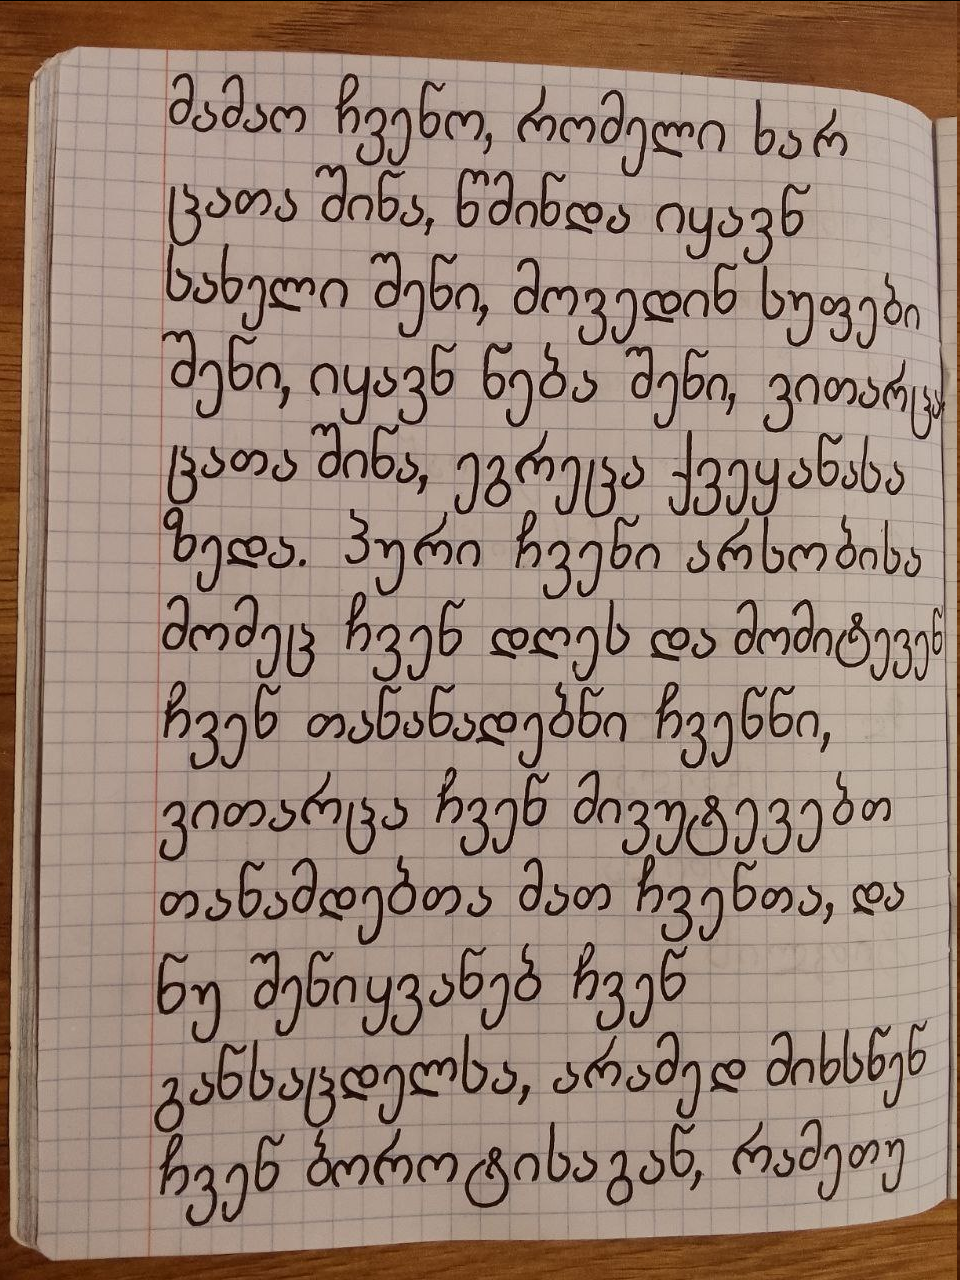 მამაო ჩვენო, რომელი ხარ
ცათა შინა, წმინდა იყავნ
სახელი შენი, მოვედინ სუფები
შენი, იყავნ ნება შენი, ვითარცა
ცათა შინა, ეგრეცა ქვეყანასა
ზედა. პური ჩვენი არსობისა
მომეც ჩვენ დღეს და მომიტევენ
ჩვენ თანანადებნი ჩვენნი,
ვითარცა ჩვენ მივუტევებთ
თანამდებთა მათ ჩვენთა, და
ნუ შენიყვანებ ჩვენ
განსაცდელსა, არამედ მიხსნენ
ჩვენ ბოროტისაგან, რამეთუ